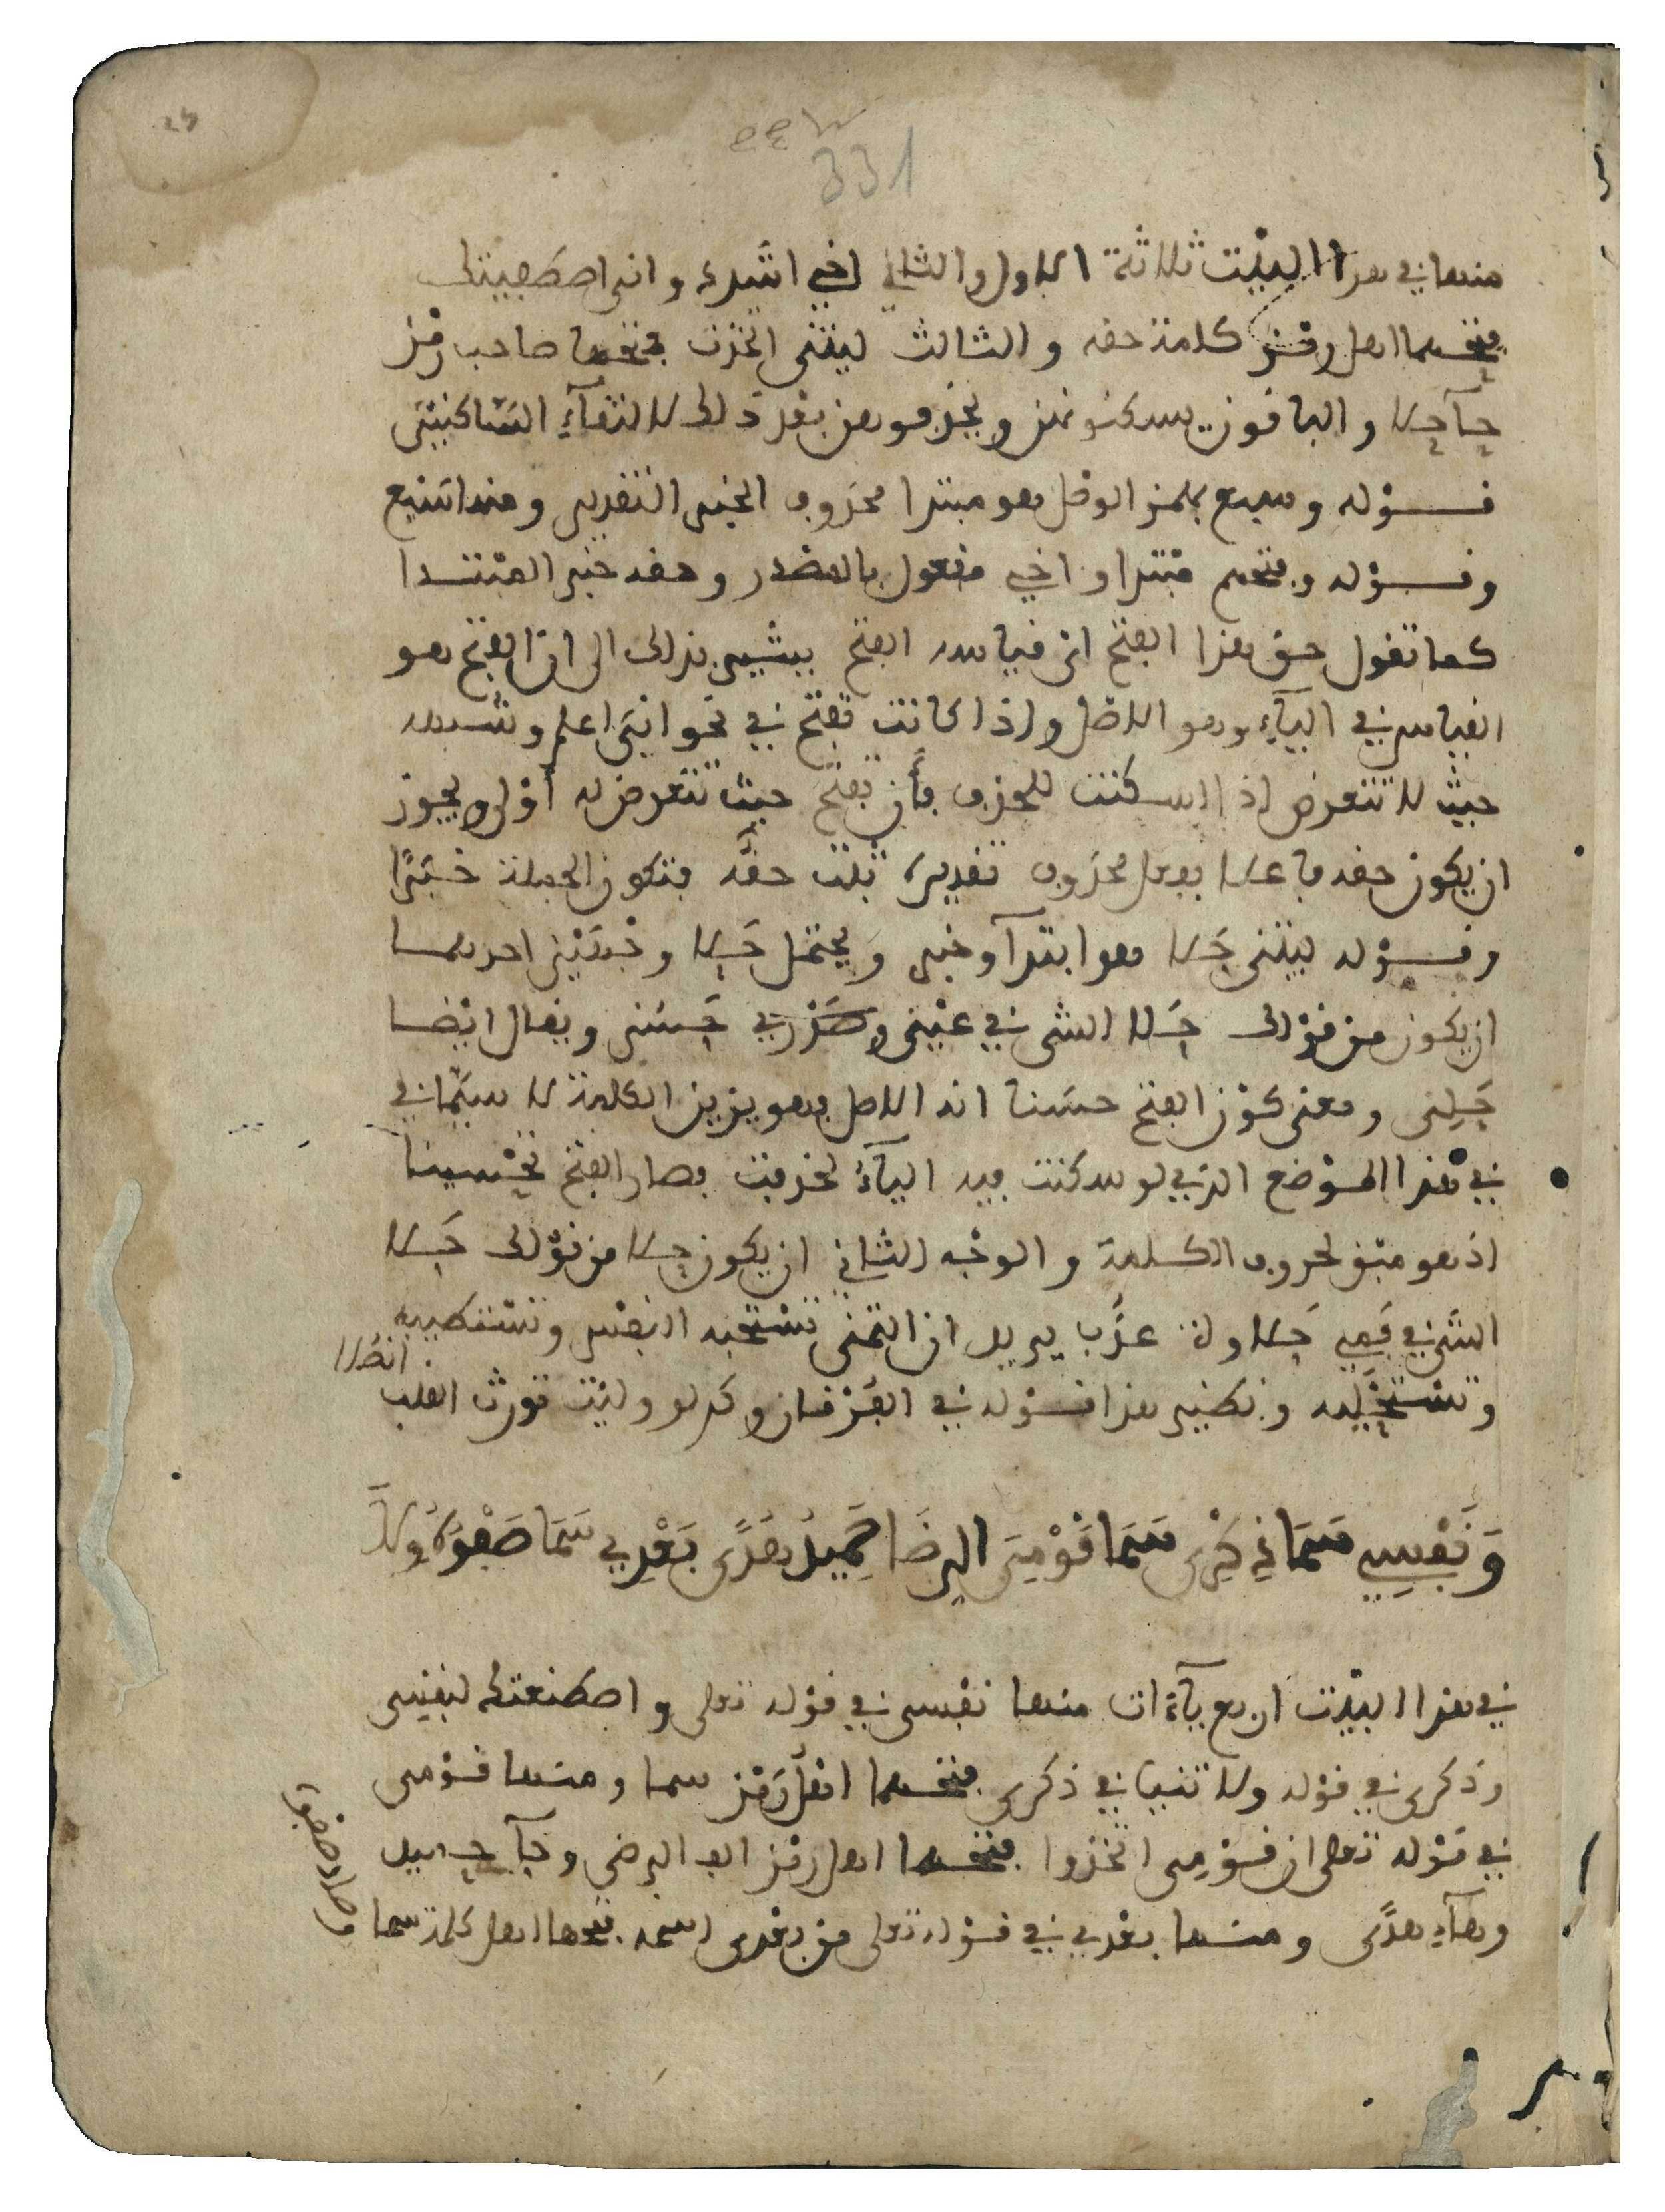 331
منها في هذا البيت ثلاثة الاول والثاني اخي اشدد و اني اصطفيتك
فتحهما اهل رمز كلمة حقه و الثالث ليتني اتخذت فتحها صاحب رمز
حآ حلا و الباقون يسكنونهن و يحذفونهن بعد ذلك لالتقآء الساكنين
قوله وسبع بهمز الوصل هو مبتدا محذوف الخبر التقدير ومنها سبع
وقوله وفتحهم مبتدا و اخي مفعول بالمصدر وحقه خبر المبتدا
كما تقول حق هذا الفتح اي قياسه الفتح يشير بذلك الى ان الفتح هو
القياس في اليآء وهو الاصل واذا كانت تفتح في نحو اني اعلم وشبهه
حيث لا تتعرض اذا سكنت للحذف فأن تفتح حيث تتعرض له أولى ويجوز
ان يكون حقه فاعلا بفعل محذوف تقديره ثبت حقه فتكون الجملة خبرًا
وقوله ليتني حلا هو ابتدآ وخبر و يحتمل حلا وجهين احدهما
ان يكون من قولك حلا الشي في عيني وصدري حسنى ويقال ايضا
حلني ومعنى كون الفتح حسنا انه الاصل وهو يزين الكلمة لا سيما في
في هذا الموضع الذي لو سكنت فيه اليآء لحذفت فصار الفتح تحسينا
اذ هو مبق لحروف الكلمة و الوجه الثاني ان يكون حلا من قولك حلا
الشي في فمي حلاوة عذب يريد ان التمني تستحبه النفس وتستطيبه
وتستحليه ونظير هذا قوله في الفرقان وكم لو وليت تورث القلب
انصلا
وَنَفْسِي سَمَا ذِكْرِي سَمَا قَوْمِيَ الرِضَا حَمِيدُ هُدًى بَعْدِي سَمَا صَفْوُهُ وِلَا
في هذا البيت اربع يآءات منها نفسي في قوله تعلى و اصطنعتك لنفسي
وذكري في قوله ولا تنيا في ذكري فتحهما اهل رمز سما ومنها قومي
في قوله تعلى ان قومي اتخذوا فتحها اهل رمز الف الرضى وحآ حميد
وهآء هدًى ومنها بعدي في قوله تعلى من بعدي اسمه فتحها اهل كلمة سما
وصاد صفوه